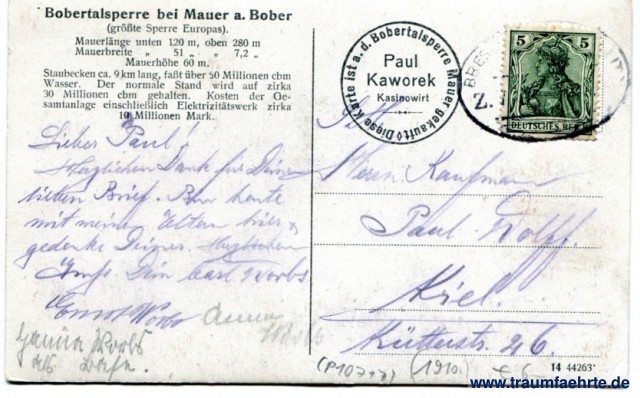 Bobertalsperre bei Mauer a. Bober
(größte Sperre Europas).
Mauerlänge unten 120 m, oben 280 m
Mauerbreite „ 51 „ „ 7,2 „
Mauerhöhe 60 m.
Staubecken ca. 9 km lang, faßt über 50 Millionen cbm
Wasser. Der normale Stand wird auf zirka
30 Millionen cbm gehalten. Kosten der Ge-
samtanlage einschließlich Elektrizitätswerk zirka
10 Millionen Mark.
Lieber Paul!
Herzlichen Dank für Deinen
lieben Brief. Bin heute
mit meinen Eltern hier
gedenke Deiner. Herzlichen
Gruß Dein
Diese Karte ist a. d. Bobertalsperre Mauer gekauft
Paul
Kaworek
Kasinowirt
BRES
5 5
DEUTSCHES REICH
Herrn Kaufmann
Paul Wolff.
Kiel.
26.
(1910)
14 44263
www.traumfaehrte.de